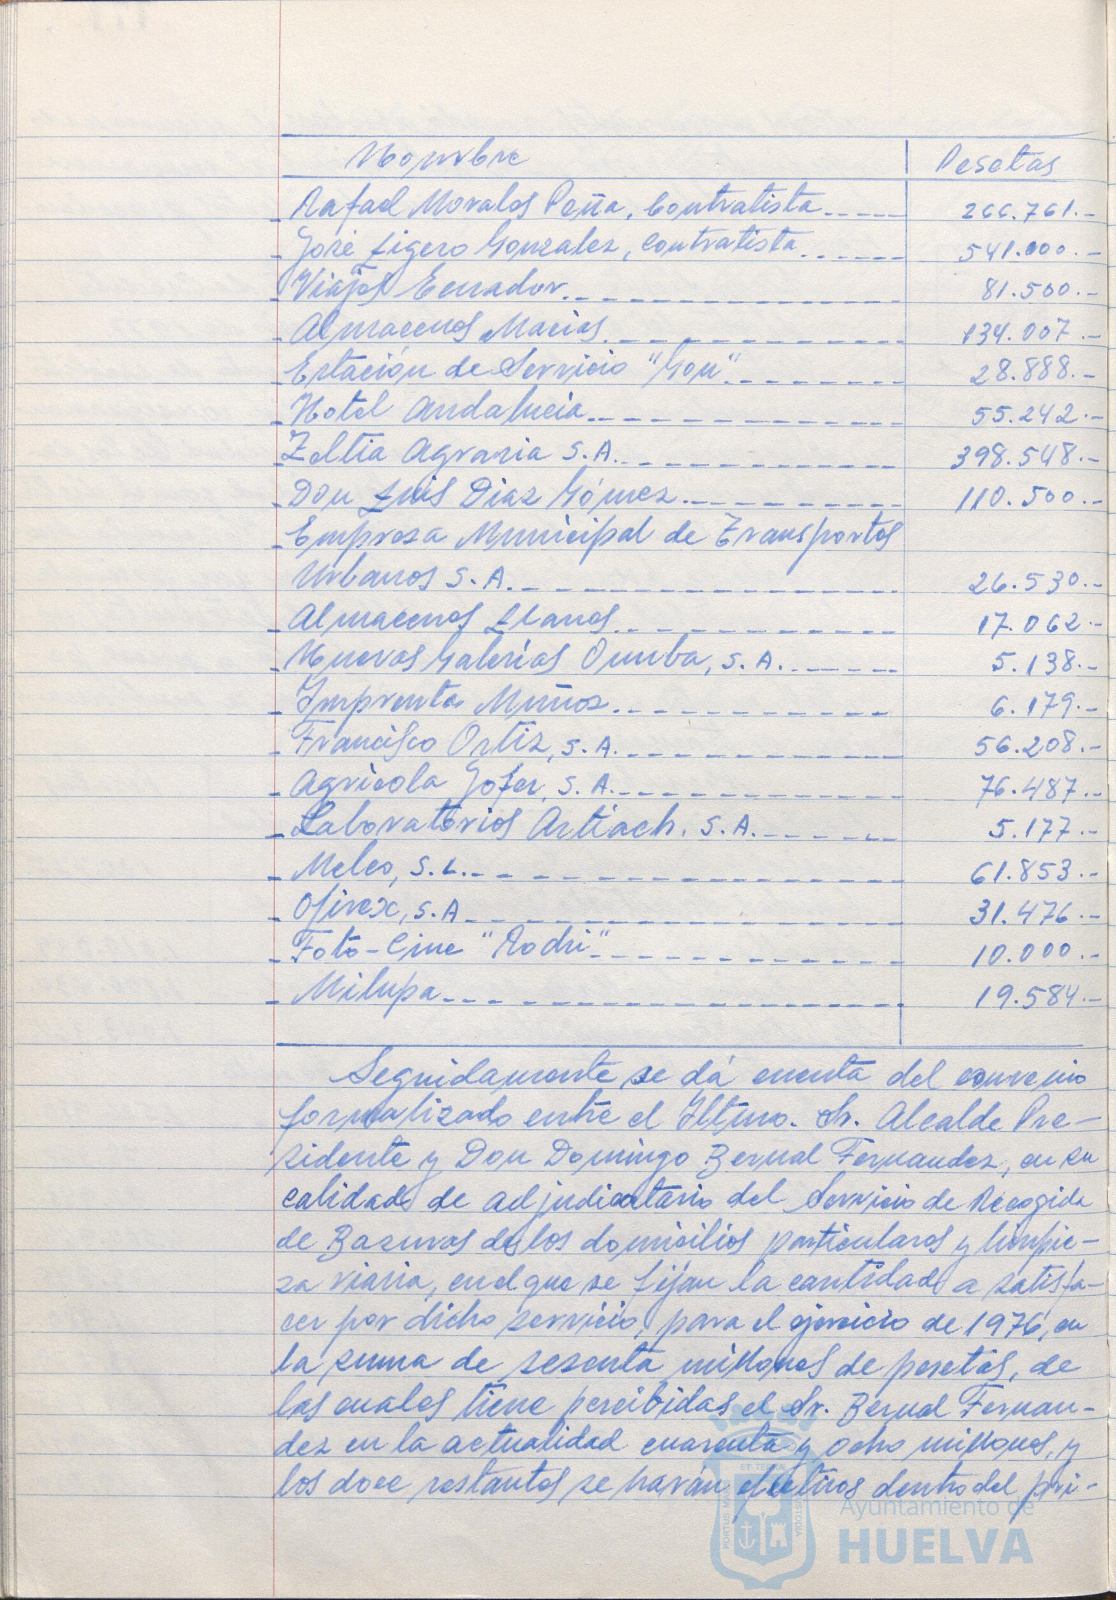 Nombre Pesetas
Rafael Morales Peña, Contratista 266.761.-
José Ligero Gonzalez, contratista 541.000.-
Viajes Ecuador 81.500.-
Almacenes Macias 134.007.-
Estación de Servicio "Gon" 28.888.-
Hotel Andalucia 55.242.-
Zeltia Agraria S.A. 398.548.-
Don Luis Diaz Gómez 110.500.-
Empresa Municipal de Transportes
Urbanos S.A. 26.530.-
Almacenes Llanos 17.062.-
Nuevas Galerias Onuba, S.A. 5.138.-
Imprenta Muñoz 6.179.-
Francisco Ortiz, S.A. 56.208.-
Agricola Jofer, S.A. 76.487.-
Laboratorios Artiach. S.A. 5.177.-
Melco, S.L. 61.853.-
Ofirex, S.A. 31.476.-
Foto-Cine "Rodri" 10.000.-
Milupa 19.584.-
Seguidamente se dá cuenta del convenio
formalizado entre el Iltmo. Sr. Alcalde Pre-
sidente y Don Domingo Bernal Fernandez, en su
calidad de adjudicatario del Servicio de Recogida
de Basuras de los domicilios particulares y limpie-
za viaria, en el que se fijan la cantidad a satisfa-
cer por dicho servicio, para el ejercicio de 1976, en
la suma de sesenta millones de pesetas, de
las cuales tiene percibidas el Sr. Bernal Fernan-
dez en la actualidad cuarenta y ocho millones, y
los doce restantes se harán efectivos dentro del pri-
Ayuntamiento de
HUELVA